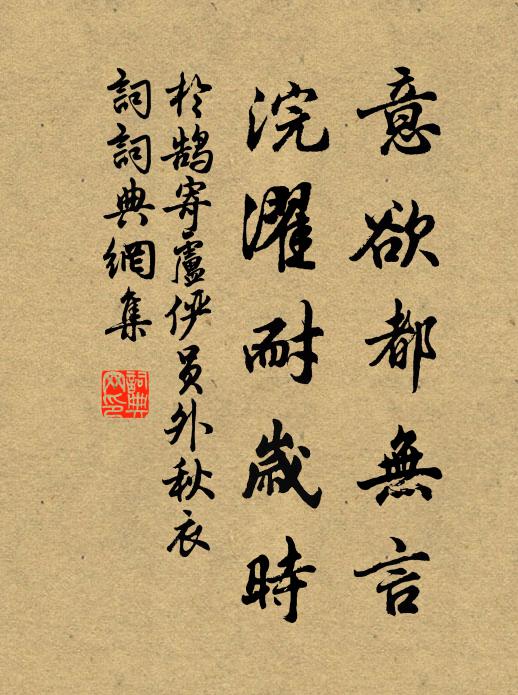 意欲都無言
浣濯耐歲時
於鵠寄盧伊員外秋衣
詞詞典網集
詞典網印